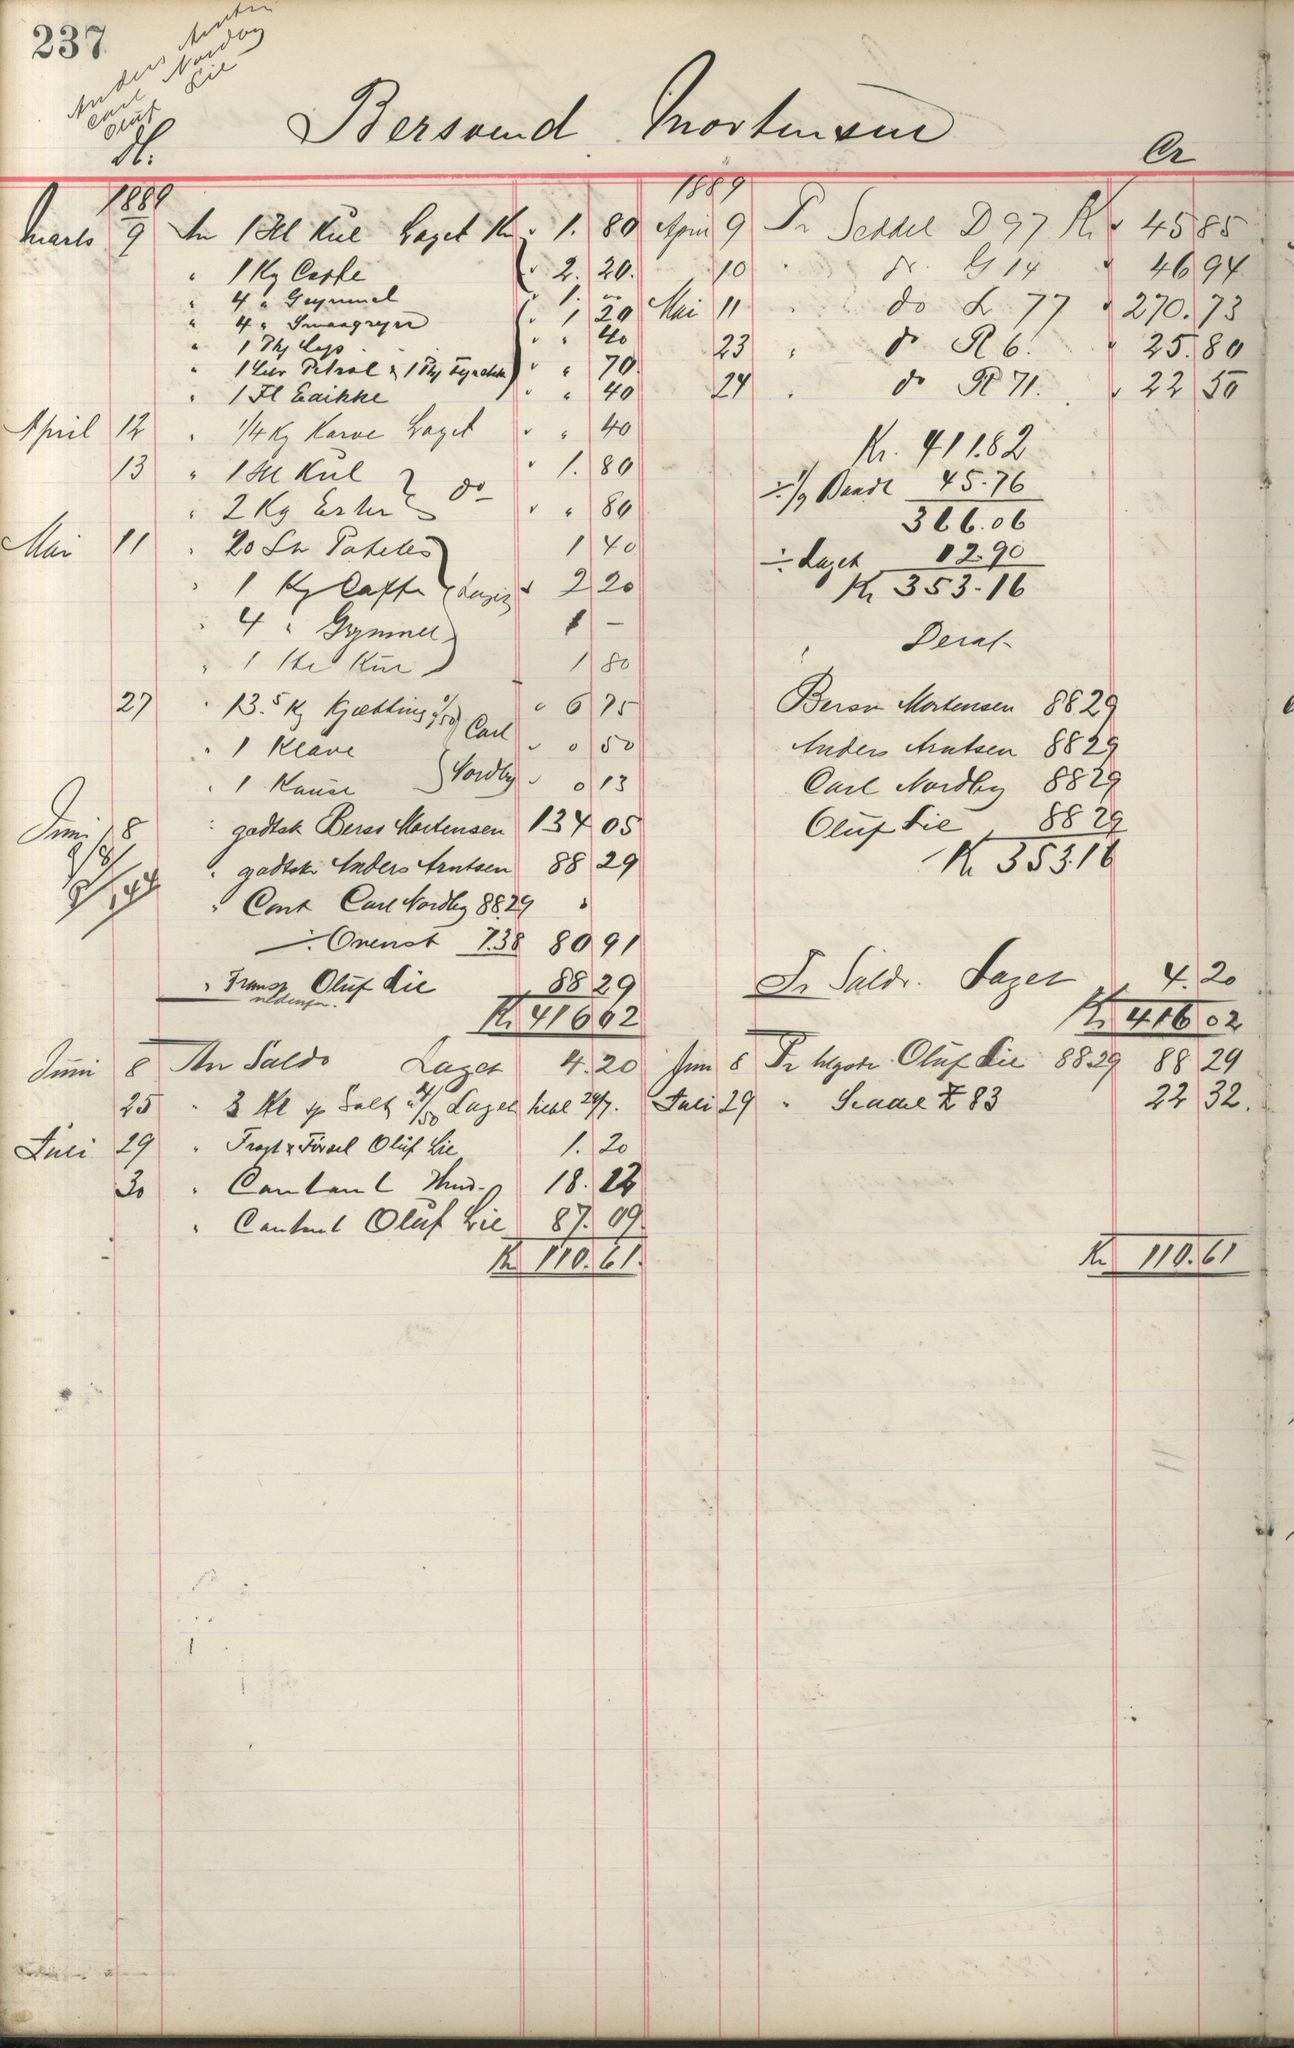 237
Anders Arntsen
Carl Nordby
Oluf Lie
Bersvend Mortensen
Dt.
Cr
1889
Marts 9 An 1 Hl Kul Laget Kr " 1. 80
" 1 Kg Caffe " 2. 20.
" 4 " Grynmel " 1. –
" 4 " Smaagryn " 1 20
" 40
" 1 Liter Petrol & 1 " " 70
" 1 Fl Eddikke " " 40
April 12 " 1/4 Kg Karve Laget " " 40
13 " 1 Hl Kul " 1. 80
" 2 Kg Erter do " " 80
Mai 11 " 20 Ltr Poteter 1 40
" 1 Kg Caffe Laget " 2 20
" 4 " Grynmel 1 –
" 1 Hl Kul 1 80
27 " 13.5 Kg Kjætting a/ 50 Carl " 6 75
" 1 Klave Nordby " 0 50
" 1 Kause " 0 13
Juni 8 " godtsk Bersv Mortensen 134 05
" godtskr Anders Arntsen 88 29
" Cont Carl Nordby 88.29 "
÷ Ovenst 7.38 80 91
" Transp Oluf Lie 88 29
nedenfor.
Kr 416 02
Juni 8 An Saldo Laget 4. 20
25 " 3 Hl gr Salt a /50 Laget betl 29/7.
Juli 29 " Fragt & Førsel Oluf Lie 1. 20
30 " Contant 18.
" Contant Oluf Lie 87. 09
Kr 110. 61.
1889
April 9 Pr Seddel D 97 Kr " 45 85
10 " do G 14 " 46 94
Mai 11 " do L 77 " 270. 73
23 " do R 6. " 25. 80
24 " do R 71. " 22 50
Kr. 411.82
÷ 1/9 Baadl 45.76
366.06
÷ Laget 12.90
Kr 353.16
Deraf
Bersv Mortensen 88.29
Anders Arntsen 88 29
Carl Nordby 88 29
Oluf Lie 88 29
Kr 353.16
Pr Saldo Laget 4. 20
Kr 416 02
Juni 8 Pr Oluf Lie 88 29 88 29
Juli 29 " Seddel Z 83 22 32.
Kr 110. 61